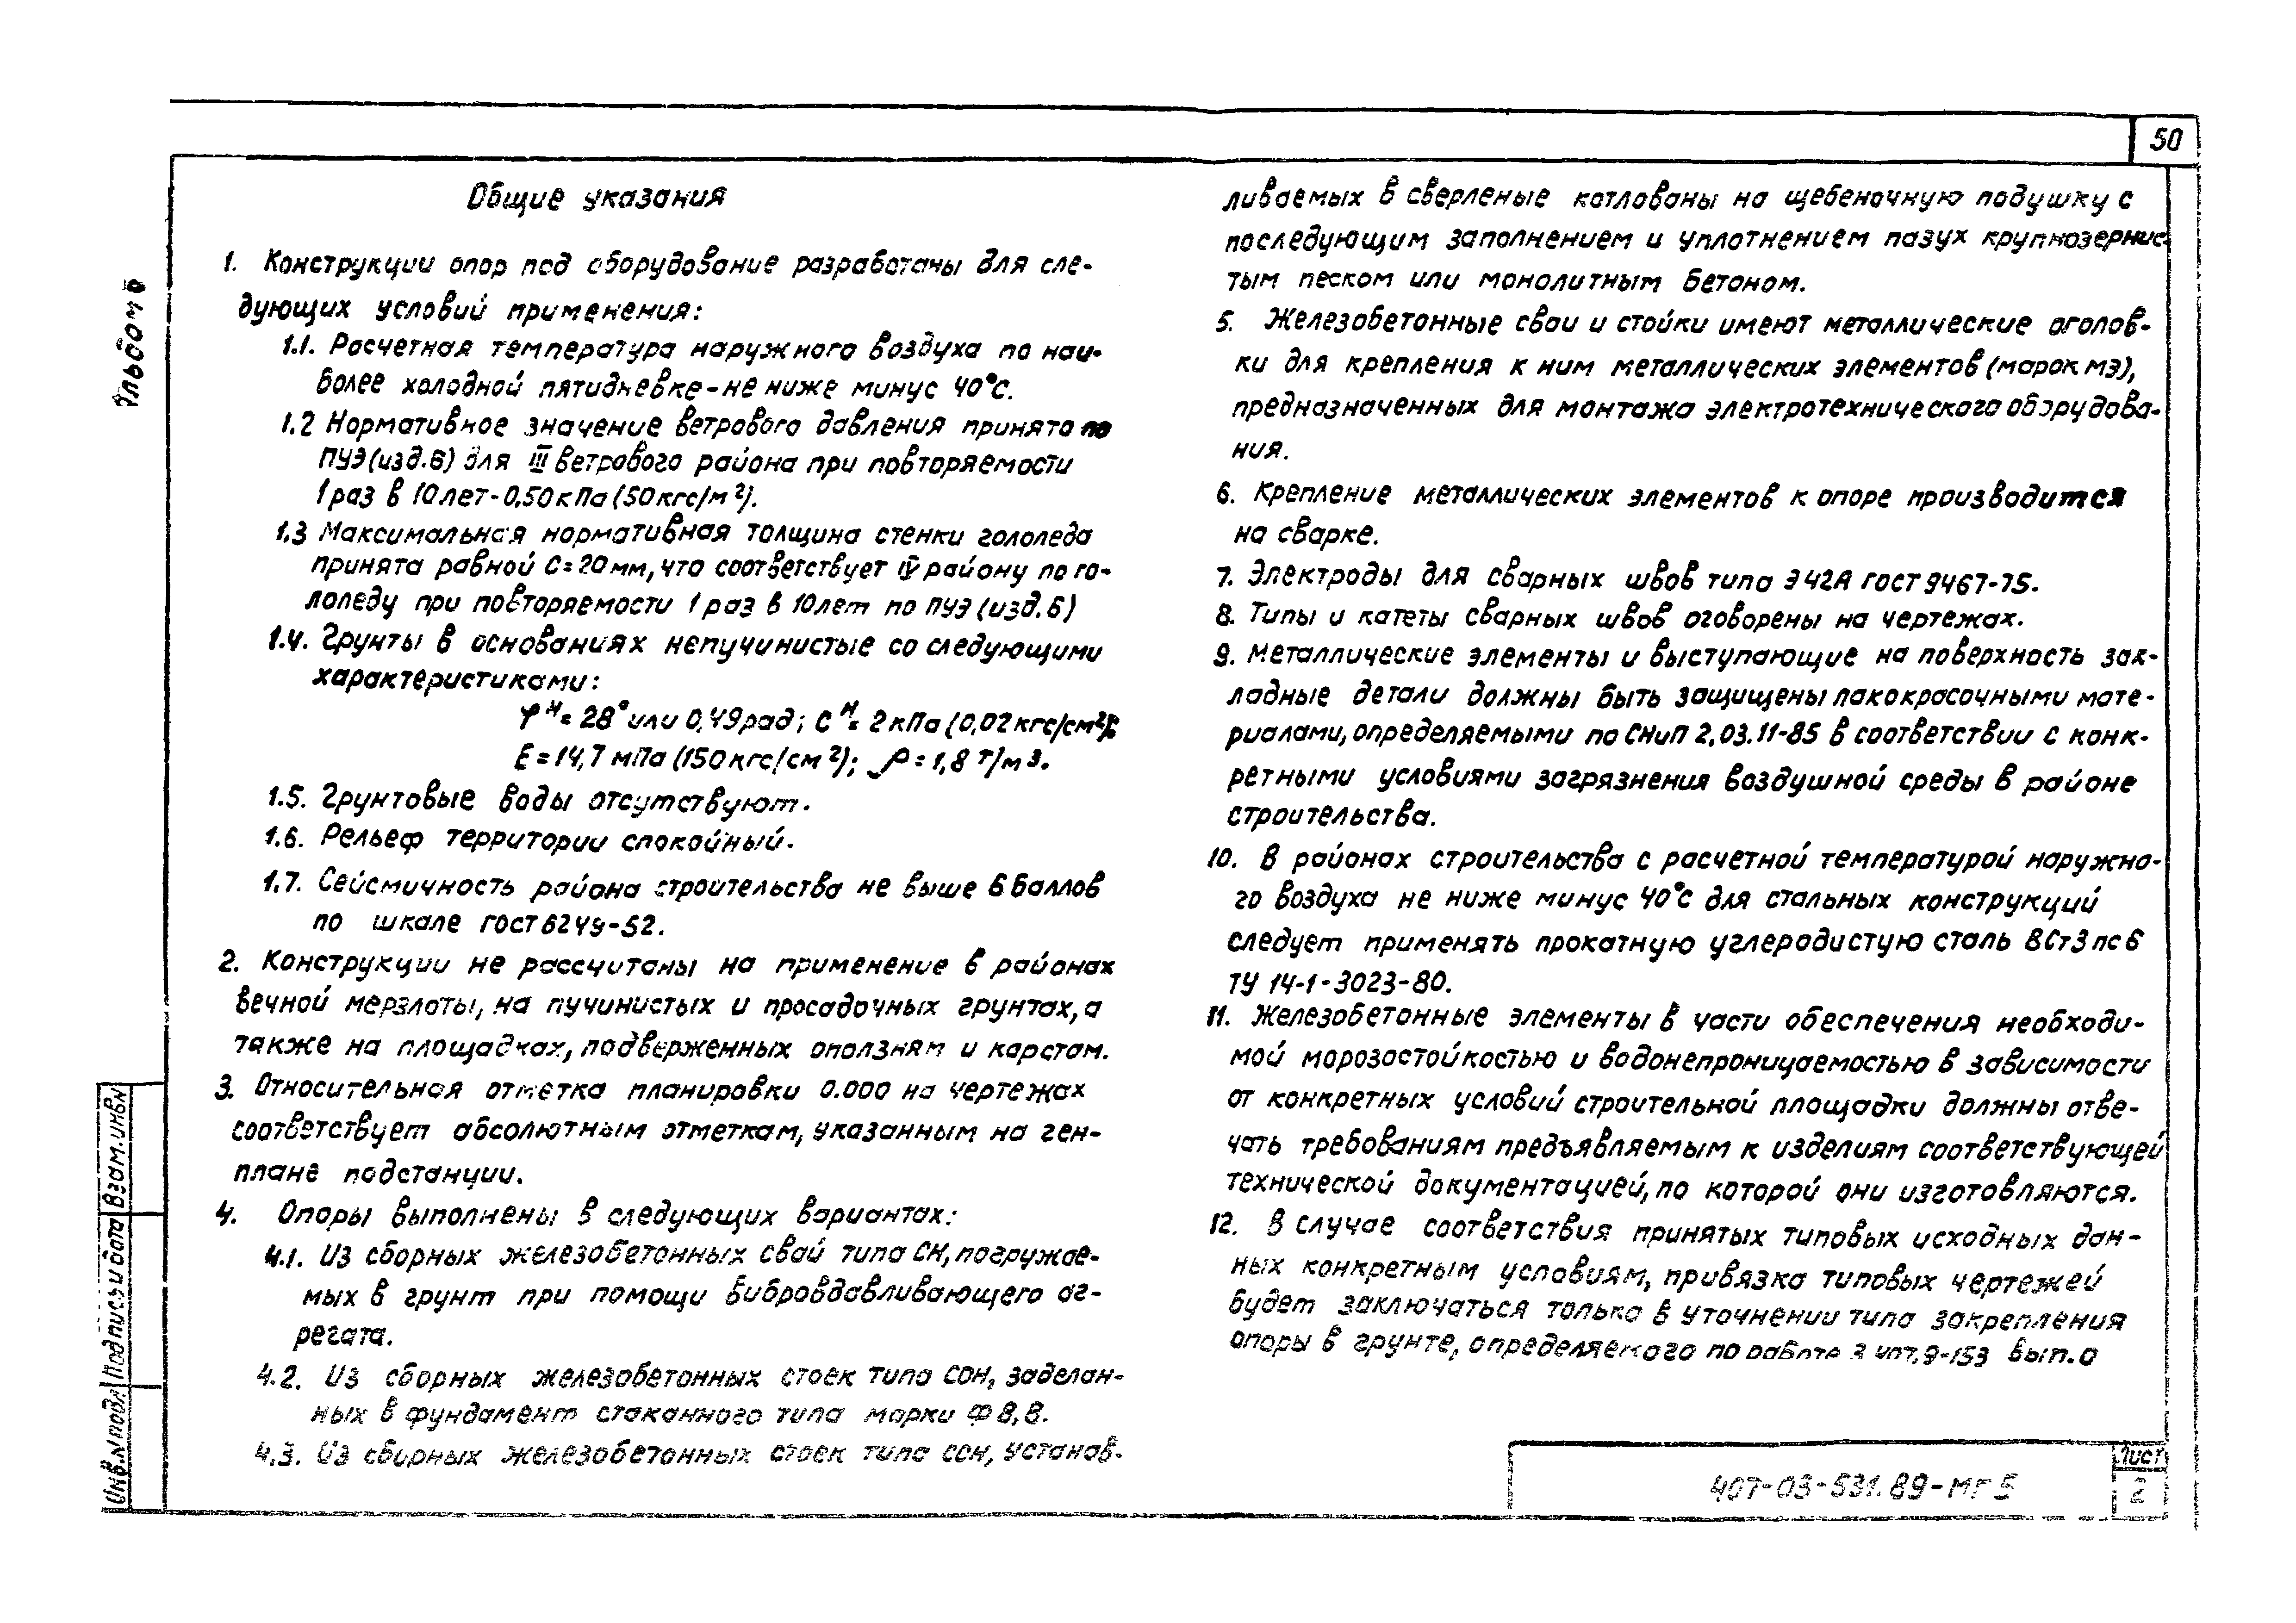 50
Альбом
Общие указания
1. Конструкции опор под оборудование разработаны для сле-
дующих условий применения:
1.1. Расчетная температура наружного воздуха по наи-
более холодной пятидневке-не ниже минус 40°с.
1.2 Нормативное значение ветрового давления принято по
ПУЭ(изд.6) для III ветрового района при повторяемости
1 раз в 10 лет-0,50кПа(50кгс/м²).
1.3 Максимальная нормативная толщина стенки гололеда
принята равной С=20мм, что соответствует IV району по го-
лоледу при повторяемости 1 раз в 10лет по ПУЭ (изд.6)
1.4. Грунты в основаниях непучинистые со следующими
характеристиками:
φᴴ=28° или 0,49рад; Сᴴ=2кПа(0,02кгс/см²);
Е=14,7мПа(150кгс/см²); ρ=1,8 т/м³.
1.5. Грунтовые воды отсутствуют.
1.6. Рельеф территории спокойный.
1.7. Сейсмичность района строительства не выше 6баллов
по шкале ГОСТ6249-52.
2. Конструкции не рассчитаны на применение в районах
вечной мерзлоты, на пучинистых и просадочных грунтах, а
также на площадках, подверженных оползням и карстам.
3. Относительная отметка планировки 0.000 на чертежах
соответствует абсолютным отметкам, указанным на ген-
плане подстанции.
4. Опоры выполнены в следующих вариантах:
4.1. Из сборных железобетонных свай типа СН, погружае-
мых в грунт при помощи вибровдавливающего аг-
регата.
4.2. Из сборных железобетонных стоек типа СОН, заделан-
ных в фундамент стаканного типа марки Ф8,8.
4.3. Из сборных железобетонных стоек типа СОН, устанав-
ливаемых в сверленые котлованы на щебеночную подушку с
последующим заполнением и уплотнением пазух крупнозернис-
тым песком или монолитным бетоном.
5. Железобетонные сваи и стойки имеют металлические оголов-
ки для крепления к ним металлических элементов(марок мэ),
предназначенных для монтажа электротехнического оборудова-
ния.
6. Крепление металлических элементов к опоре производится
на сварке.
7. Электроды для сварных швов типа Э42А ГОСТ 9467-75.
8. Типы и катеты сварных швов оговорены на чертежах.
9. Металлические элементы и выступающие на поверхность зак-
ладные детали должны быть защищены лакокрасочными мате-
риалами, определяемыми по СНиП 2.03.11-85 в соответствии с конк-
ретными условиями загрязнения воздушной среды в районе
строительства.
10. В районах строительства с расчетной температурой наружно-
го воздуха не ниже минус 40°с для стальных конструкций
следует применять прокатную углеродистую сталь ВСт3пс6
ТУ 14-1-3023-80.
11. Железобетонные элементы в части обеспечения необходи-
мой морозостойкостью и водонепроницаемостью в зависимости
от конкретных условий строительной площадки должны отве-
чать требованиям предъявляемым к изделиям соответствующей
технической документацией, по которой они изготовляются.
12. В случае соответствия принятых типовых исходных дан-
ных конкретным условиям, привязка типовых чертежей
будет заключаться только в уточнении типа закрепления
опоры в грунте, определяемого по работе 3.407.9-153 вып.0
Инв.N подл Подпись и дата Взам.инвN
407-03-531.89-МГ5
Лист
2